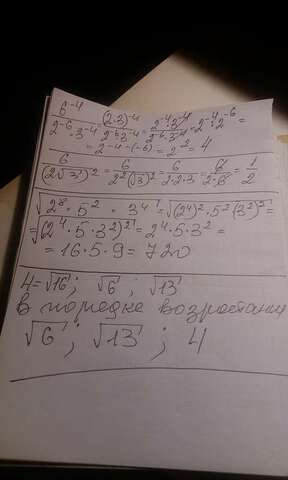 6⁻⁴/(2⁻⁶·3⁻⁴) = (2·3)⁻⁴/(2⁻⁶·3⁻⁴) = 2⁻⁴·3⁻⁴/(2⁻⁶·3⁻⁴) = 2⁻⁴:2⁻⁶ =
= 2⁻⁴⁻⁽⁻⁶⁾ = 2² = 4
6/(2√3)² = 6/(2²(√3)²) = 6/(2·2·3) = 6/(2·6) = 1/2
√(2⁸·5²·3⁴) = √((2⁴)²·5²(3²)²) =
= √((2⁴·5·3²)²) = 2⁴·5·3² =
= 16·5·9 = 720
4=√16; √6; √13
в порядке возростания
√6; √13; 4